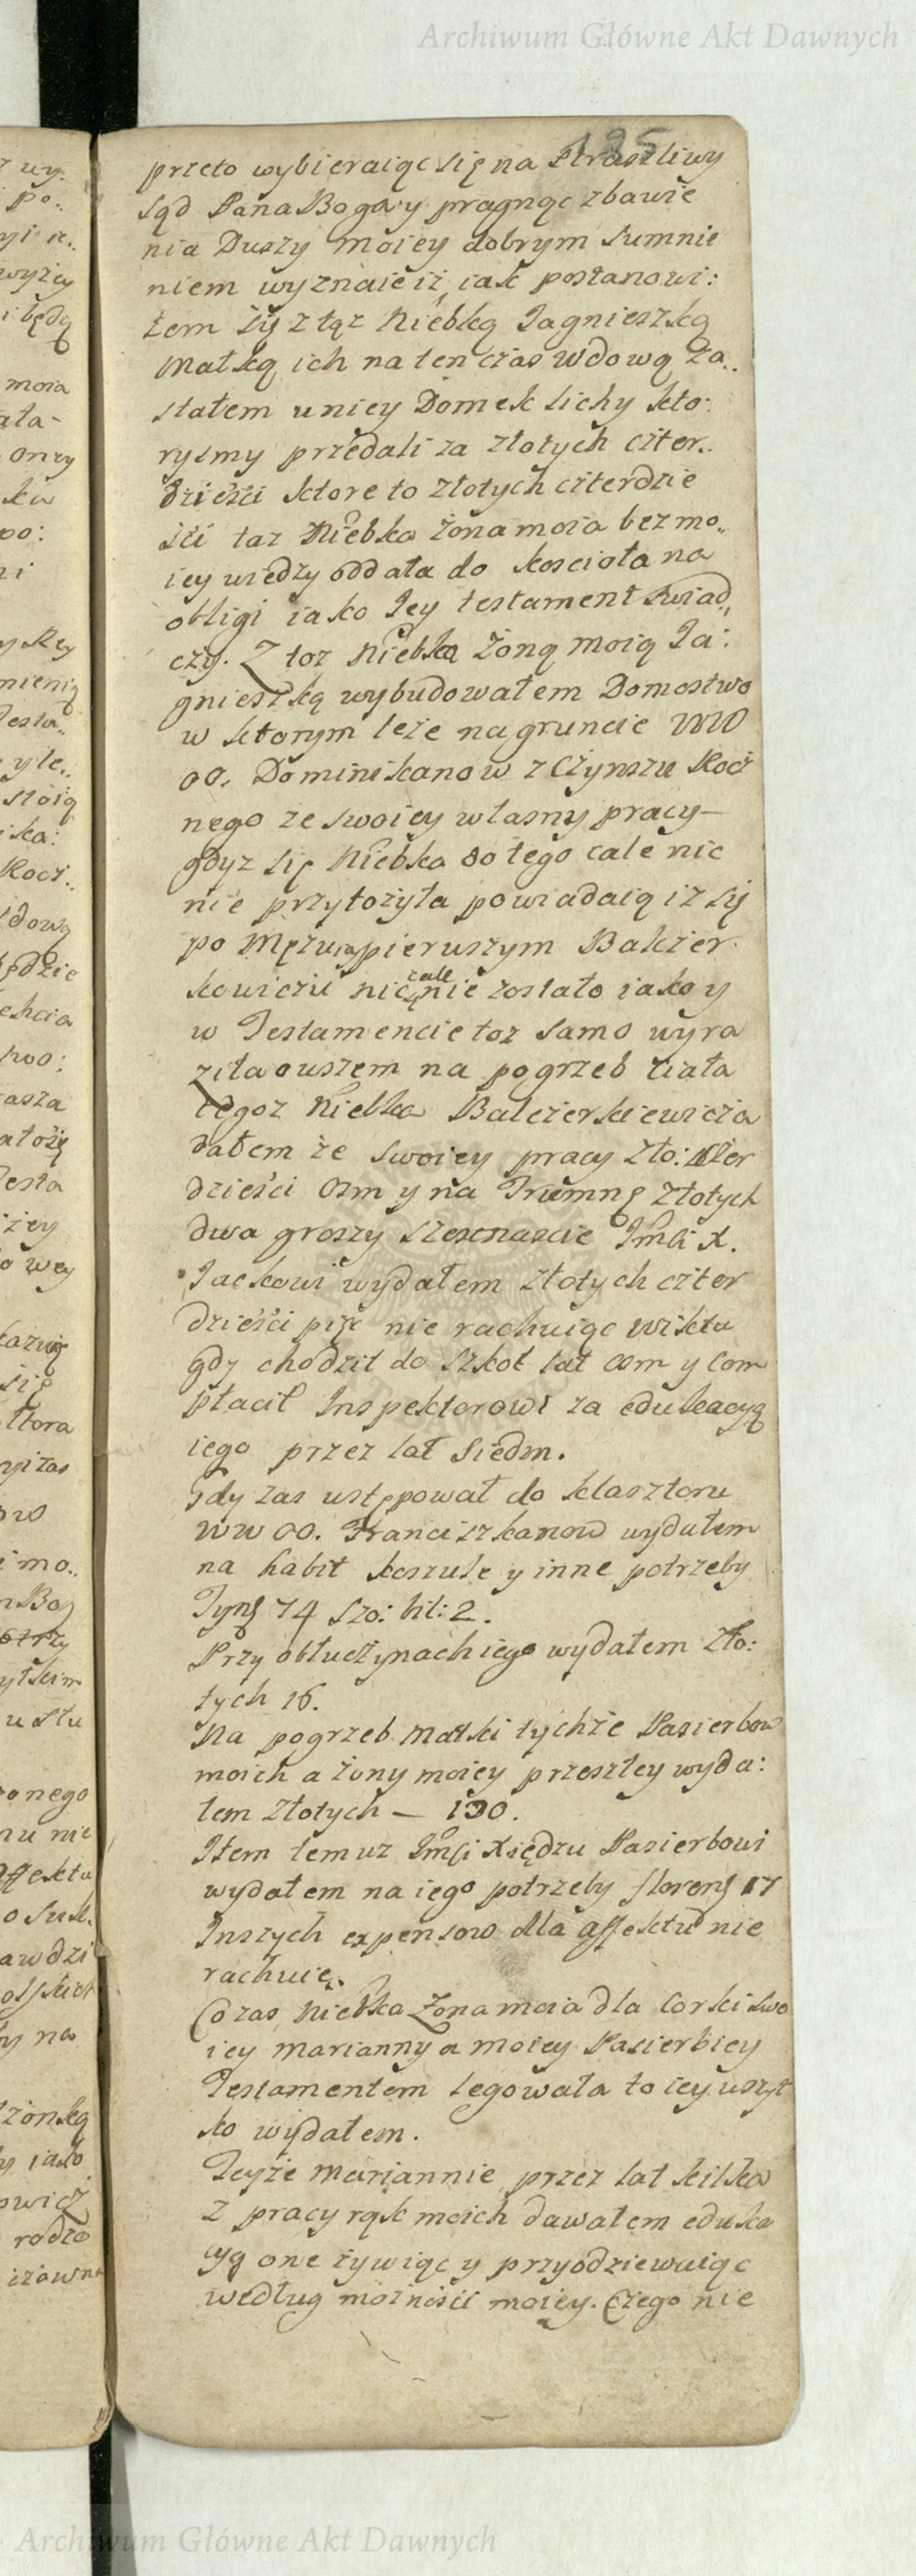 Archiwum Główne Akt Dawnych
195
przeto wybieraiąc się na straszliwy
sąd Pana Boga y pragnąc zbawie
nia Duszy moiey dobrym sumnie
niem wyznaię iż iak postanowi:
łem się z tąż Niebką Jagnieszką
Matką ich na ten czas wdową za..
stałem u niey Domek lichy kto:
rysmy przedali za złotych czter..
dzieści ktore to złotych czterdzie
ści taz Niebka żona moia bez mo..
iey wiedzy oddała do koscioła na
obligi iako Jey testament swiad,,
czy. Z toz Niebką żoną moią Ja:
gnieszką wybudowałem Domostwo
w ktorym leże na gruncie WW
OO. Dominikanow z Czynszu Rocz
nego ze swoiey własny pracy
gdyz się Niebka do tego cale nic
nie przyłożyła powiadaią iz się
po Mężu pierwszym Balcer
kowiczu nic cale nie zostało iako y
w Testamencie toz samo wyra
ziła owszem na pogrzeb ciała
tegoz Niebka Balcierkiewicza
dałem ze swoiey pracy zło: czter
dzieści osm y na Trumnę złotych
dwa groszy szesnascie Jmći X.
Jackowi wydałem złotych czter
dzieści pię nie rachuiąc wiktu
gdy chodził do szkoł lat osm y com
płacił Inspektorowi za edukacyą
iego przez lat siedm.
Gdy zas ustępował do klasztoru
WW OO. Franciszkanow wydałem
na habit koszule y inne potrzeby
Tynf 74 szo: bit: 2.
Przy obłuczynach iego wydałem zło:
tych 16.
Na pogrzeb matki tychże Pasierbow
moich a żony moiey przeszłey wyda:
łem złotych — 130.
Item temuz Jmći Xiędzu Pasierbowi
wydałem na iego potrzeby floren 17
Inszych expensow dla affektu nie
rachuię.
Co zas Niebka Żona moia dla Corki swo
iey Marianny a moiey Pasierbicy
Testamentem legowała to iey wszyt
ko wydałem.
Teyże Mariannie przez lat kilka
z pracy rąk moich dawałem eduka
cyą one żywiąc y przyodziewaiąc
według możności moiey. Czego nie
Archiwum Główne Akt Dawnych